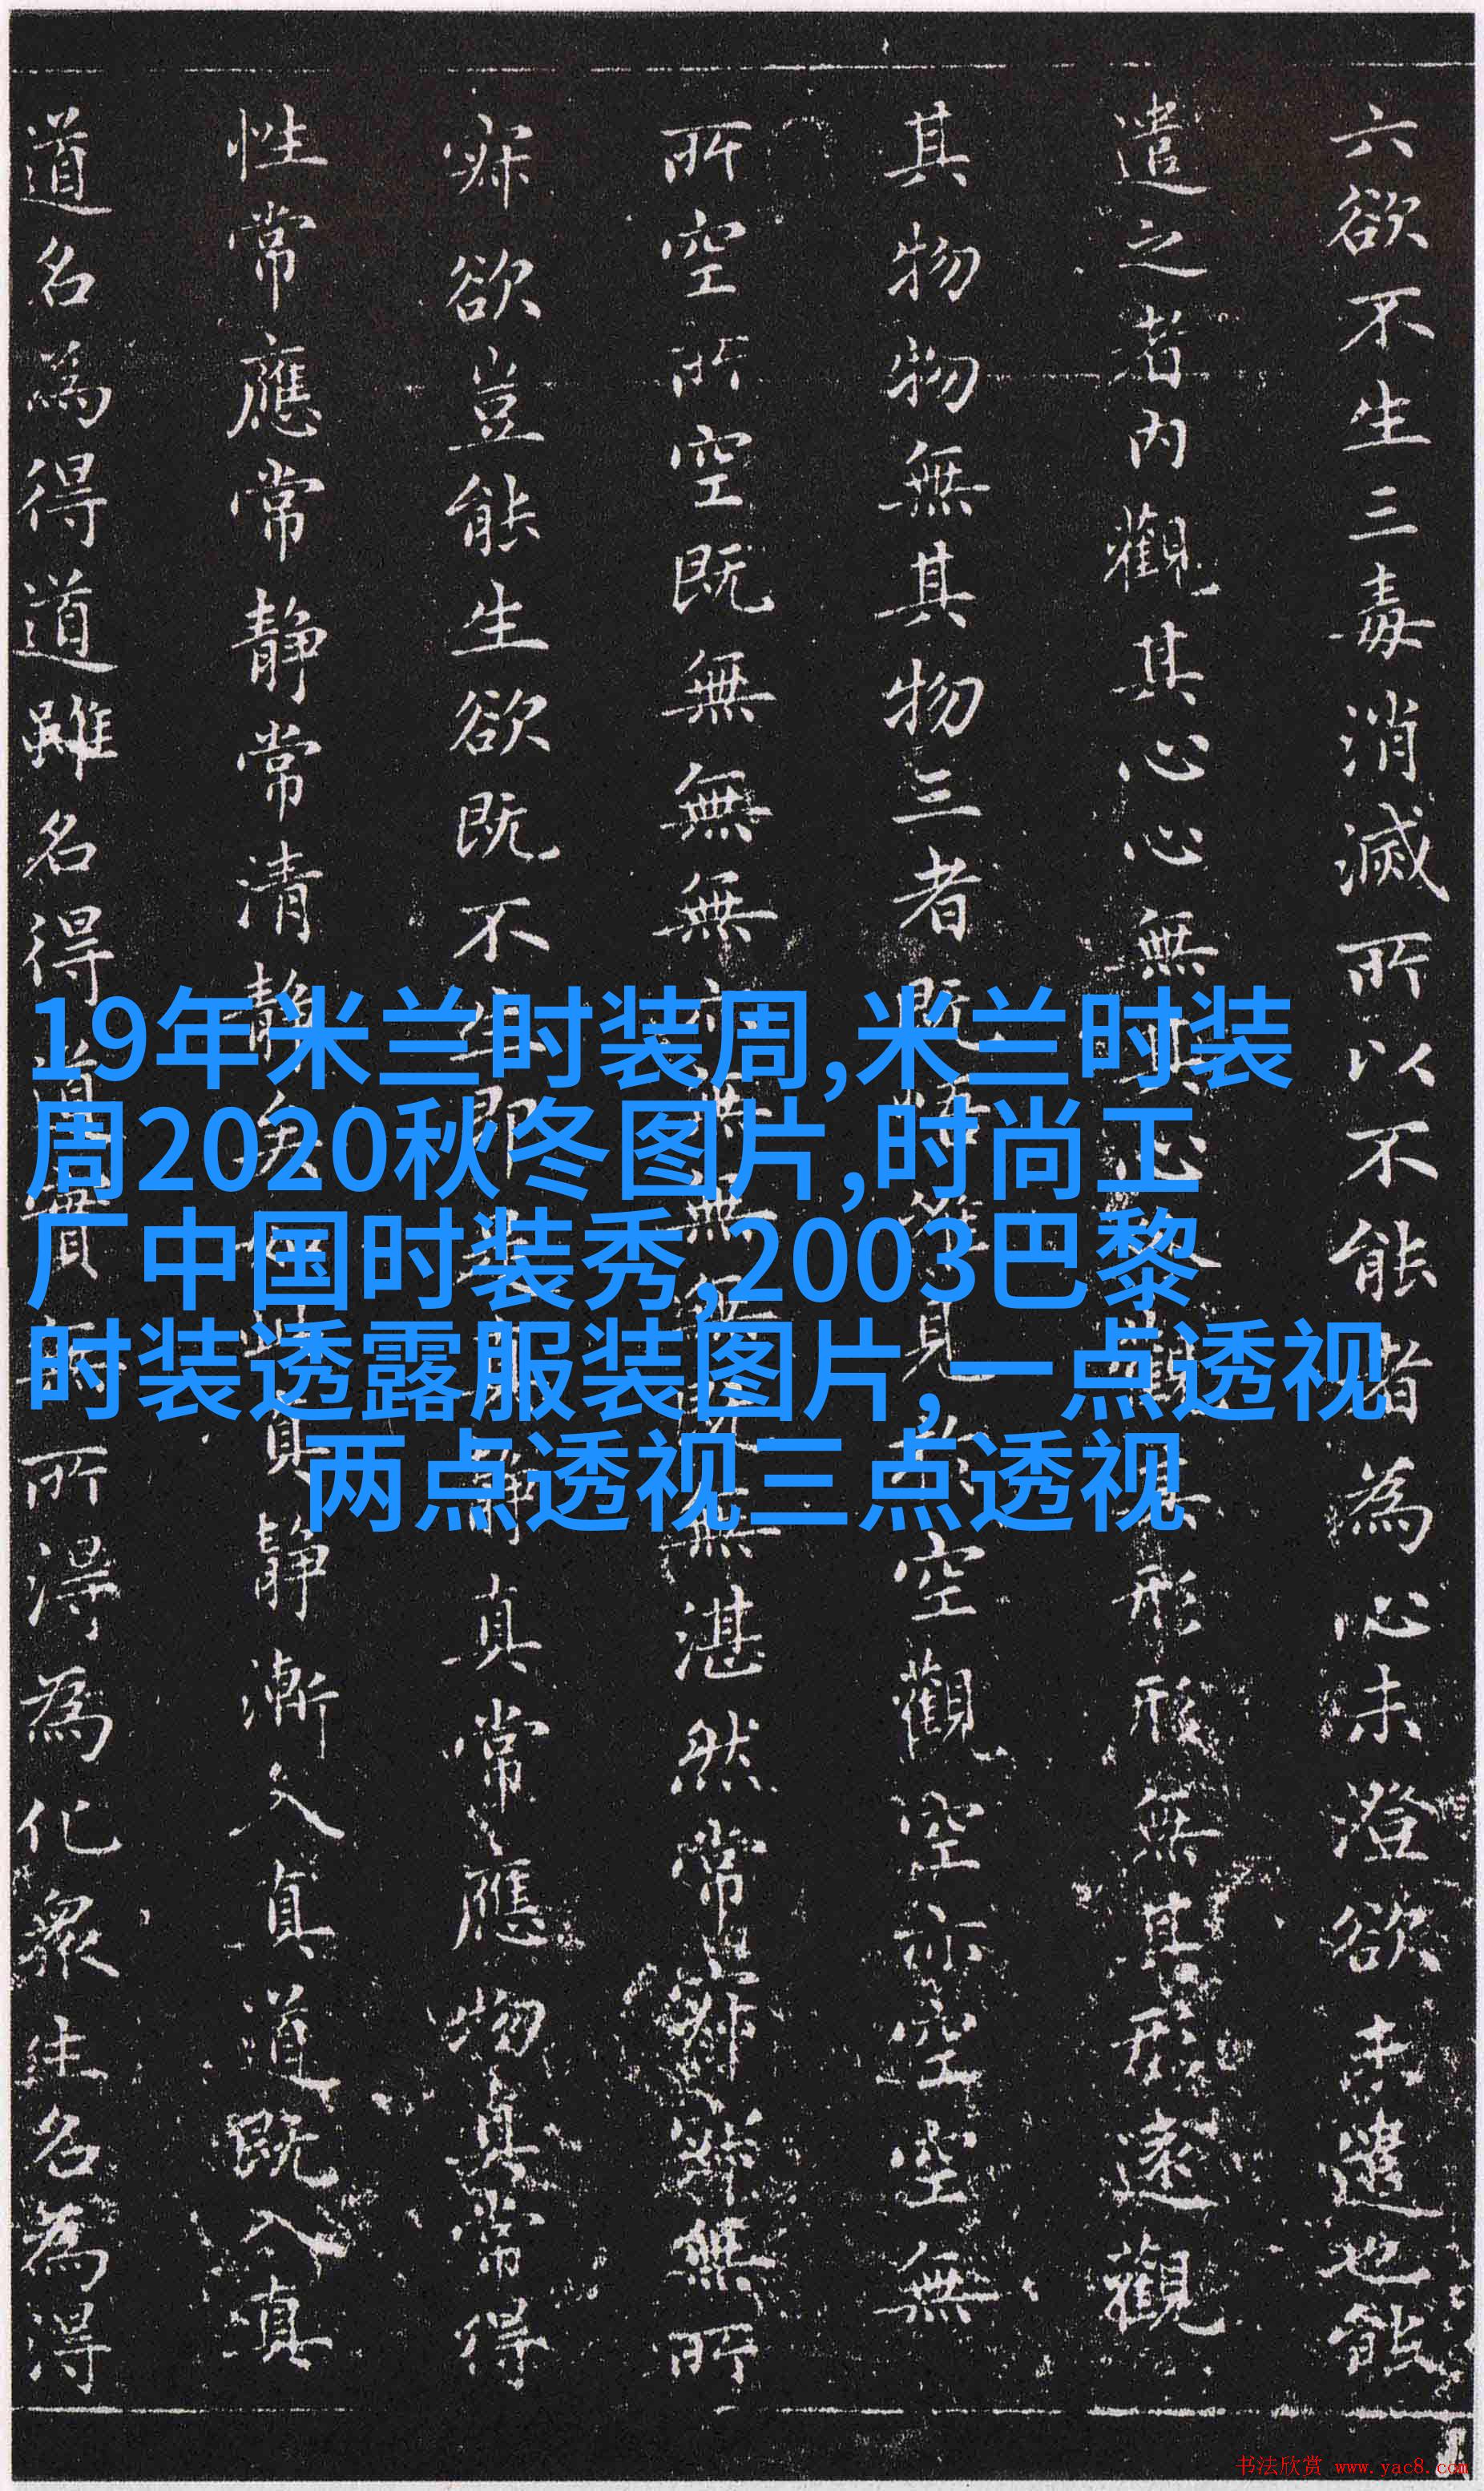 六欲不生三毒消滅所以不能者為心未澄欲未遣也能
遣之者內觀其心心無其心觀其形形無其形遠觀
其物物無其物三者既悟見空觀空亦空空無
所空所空既無無無亦無無無既無湛然常寂寂無所
寂欲豈能生欲既不生即真靜真常應物真常得
性常應常靜常清靜矣如此真靜漸入真道既入真
道名為得道雖名得道實無所得為化眾生名為得
19年米兰时装周,米兰时装
周2020秋冬图片,时尚工
厂中国时装秀,2003巴黎
时装透露服装图片,一点透视
两点透视三点透视
书法欣赏 www.yac8.com